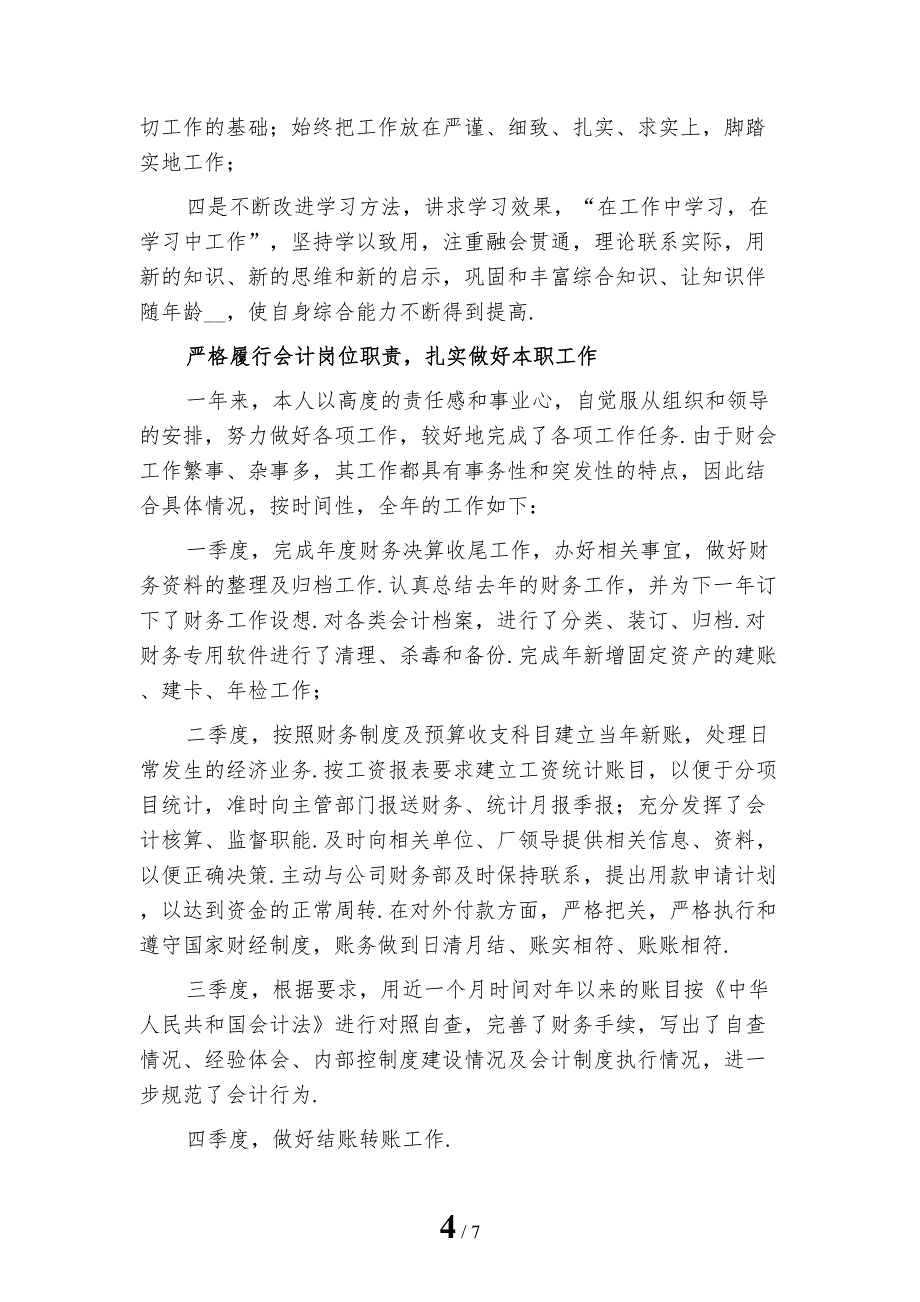 切工作的基础；始终把工作放在严谨、细致、扎实、求实上，脚踏
实地工作；
四是不断改进学习方法，讲求学习效果，“在工作中学习，在
学习中工作”，坚持学以致用，注重融会贯通，理论联系实际，用
新的知识、新的思维和新的启示，巩固和丰富综合知识、让知识伴
随年龄__，使自身综合能力不断得到提高.
严格履行会计岗位职责，扎实做好本职工作
一年来，本人以高度的责任感和事业心，自觉服从组织和领导
的安排，努力做好各项工作，较好地完成了各项工作任务.由于财会
工作繁事、杂事多，其工作都具有事务性和突发性的特点，因此结
合具体情况，按时间性，全年的工作如下：
一季度，完成年度财务决算收尾工作，办好相关事宜，做好财
务资料的整理及归档工作.认真总结去年的财务工作，并为下一年订
下了财务工作设想.对各类会计档案，进行了分类、装订、归档.对
财务专用软件进行了清理、杀毒和备份.完成年新增固定资产的建账
、建卡、年检工作；
二季度，按照财务制度及预算收支科目建立当年新账，处理日
常发生的经济业务.按工资报表要求建立工资统计账目，以便于分项
目统计，准时向主管部门报送财务、统计月报季报；充分发挥了会
计核算、监督职能.及时向相关单位、厂领导提供相关信息、资料，
以便正确决策.主动与公司财务部及时保持联系，提出用款申请计划
，以达到资金的正常周转.在对外付款方面，严格把关，严格执行和
遵守国家财经制度，账务做到日清月结、账实相符、账账相符.
三季度，根据要求，用近一个月时间对年以来的账目按《中华
人民共和国会计法》进行对照自查，完善了财务手续，写出了自查
情况、经验体会、内部控制度建设情况及会计制度执行情况，进一
步规范了会计行为.
四季度，做好结账转账工作.
4 / 7